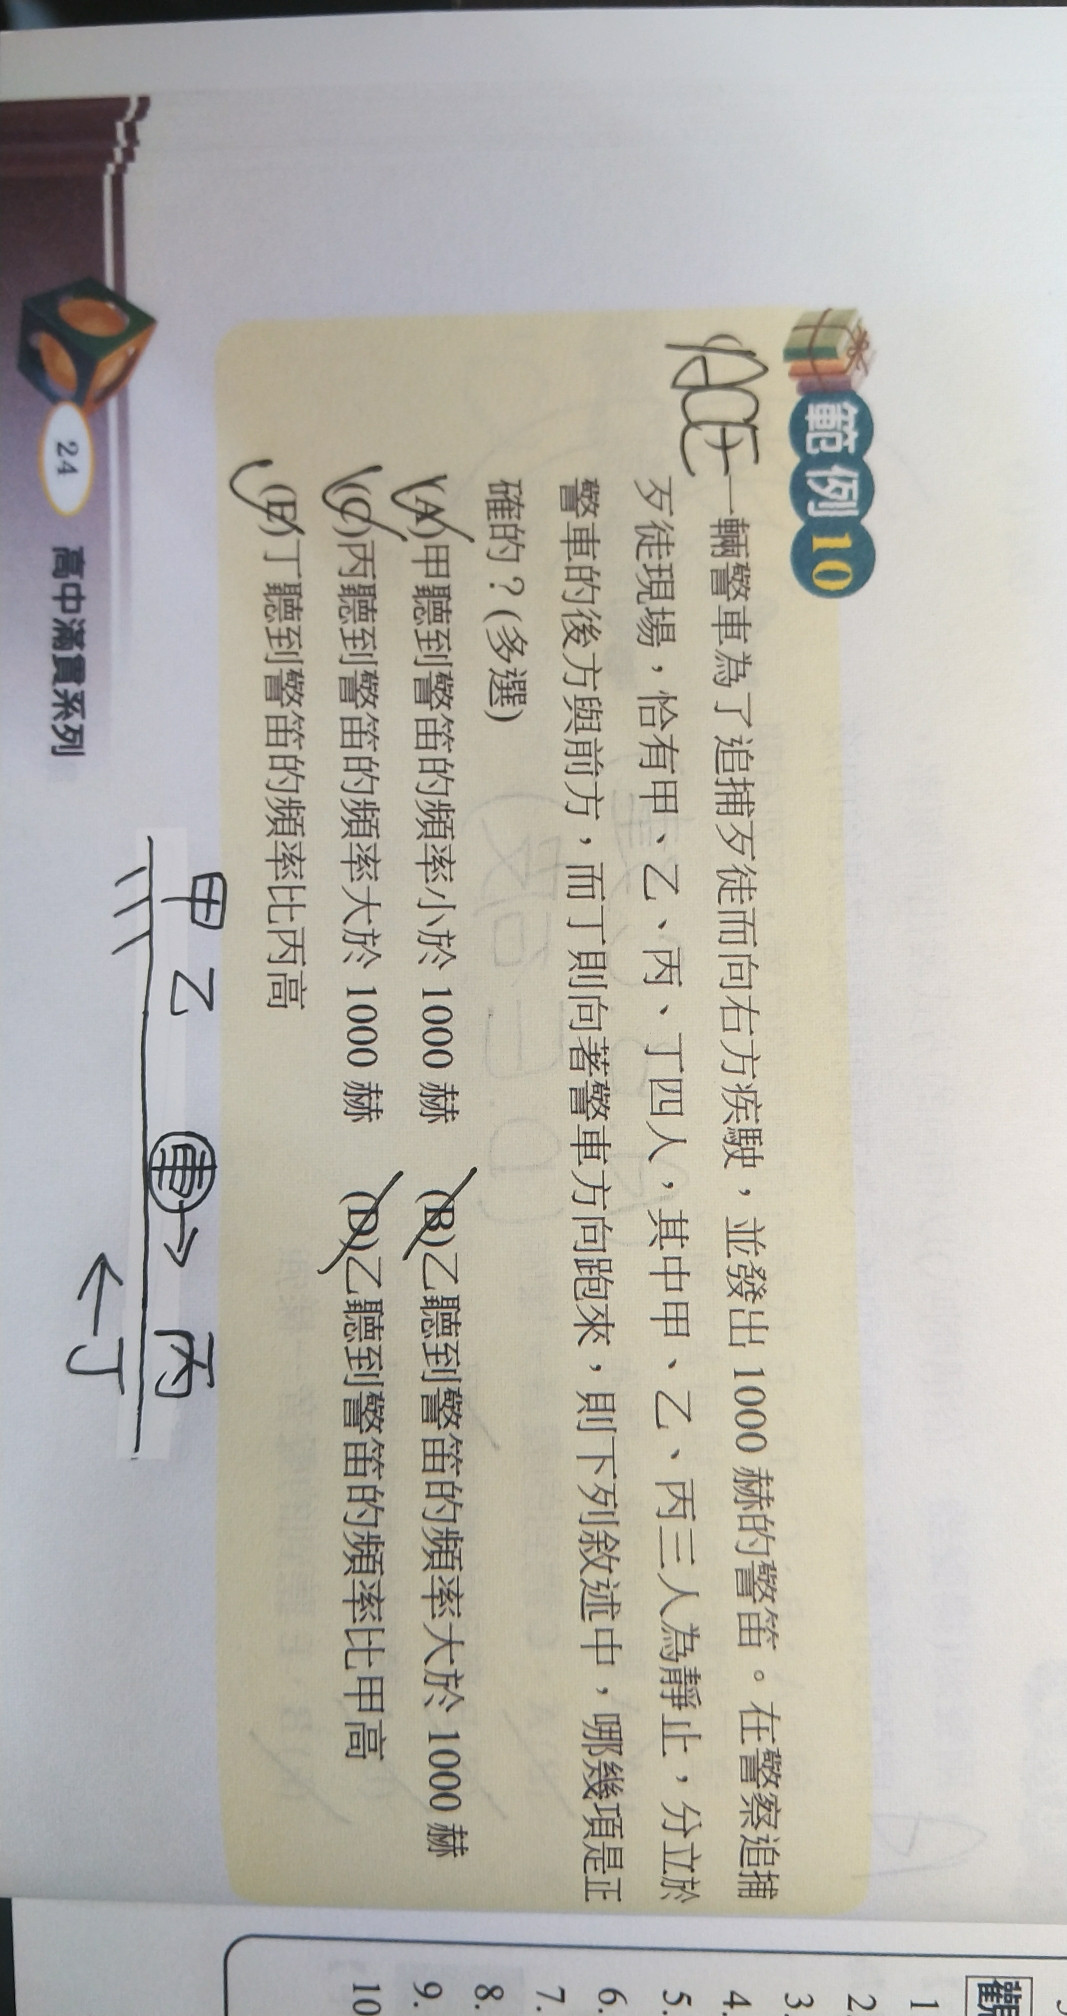 範例10
ACE
一輛警車為了追捕歹徒而向右方疾駛，並發出 1000 赫的警笛。在警察追捕
歹徒現場，恰有甲、乙、丙、丁四人，其中甲、乙、丙三人為靜止，分立於
警車的後方與前方，而丁則向著警車方向跑來，則下列敘述中，哪幾項是正
確的？(多選)
(A)甲聽到警笛的頻率小於 1000 赫 (B)乙聽到警笛的頻率大於 1000 赫
(C)丙聽到警笛的頻率大於 1000 赫 (D)乙聽到警笛的頻率比甲高
(E)丁聽到警笛的頻率比丙高
甲 乙 車→ 丙
←丁
24 高中滿貫系列
1
2
3.
4.
5.
6.
7.
8.
9.
10